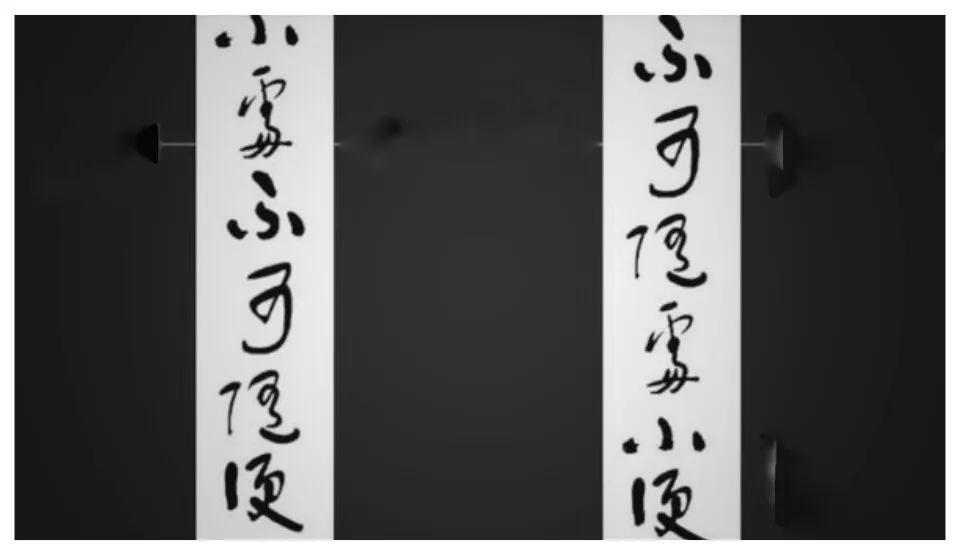 不可隨處小便
小處不可隨便